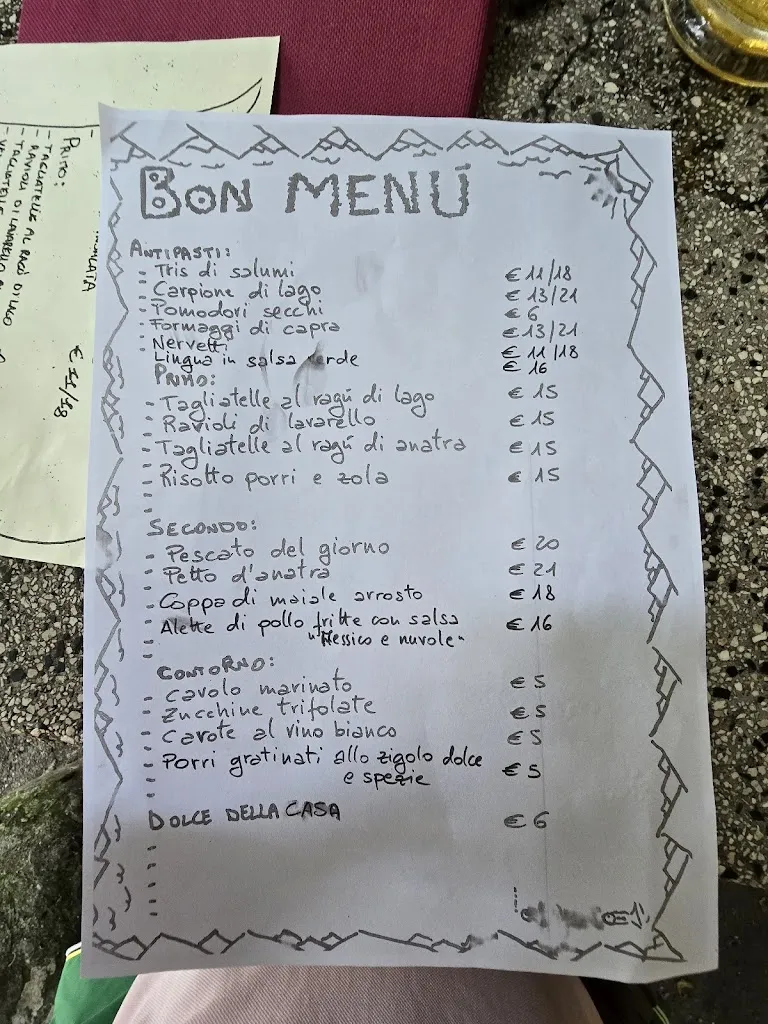 BON MENÚ
ANTIPASTI:
- Tris di salumi € 11/18
- Carpione di lago € 13/21
- Pomodori secchi € 6
- Formaggi di capra € 13/21
- Nervetti € 11/18
Lingua in salsa verde € 16
PRIMO:
- Tagliatelle al ragú di lago € 15
- Ravioli di lavarello € 15
- Tagliatelle al ragú di anatra € 15
- Risotto porri e zola € 15
SECONDO:
- Pescato del giorno € 20
- Petto d'anatra € 21
- Coppa di maiale arrosto € 18
- Alette di pollo fritte con salsa € 16
"Messico e nuvole"
CONTORNO:
- Cavolo marinato € 5
- Zucchine trifolate € 5
- Carote al vino bianco € 5
- Porri gratinati allo zigolo dolce € 5
e spezie
DOLCE DELLA CASA € 6
PRIMO:
- TAGLIATELLE AL RAGÚ DI LAGO
- RAVIOLI DI LAVARELLO
- TAGLIATELLE
€ 11/18